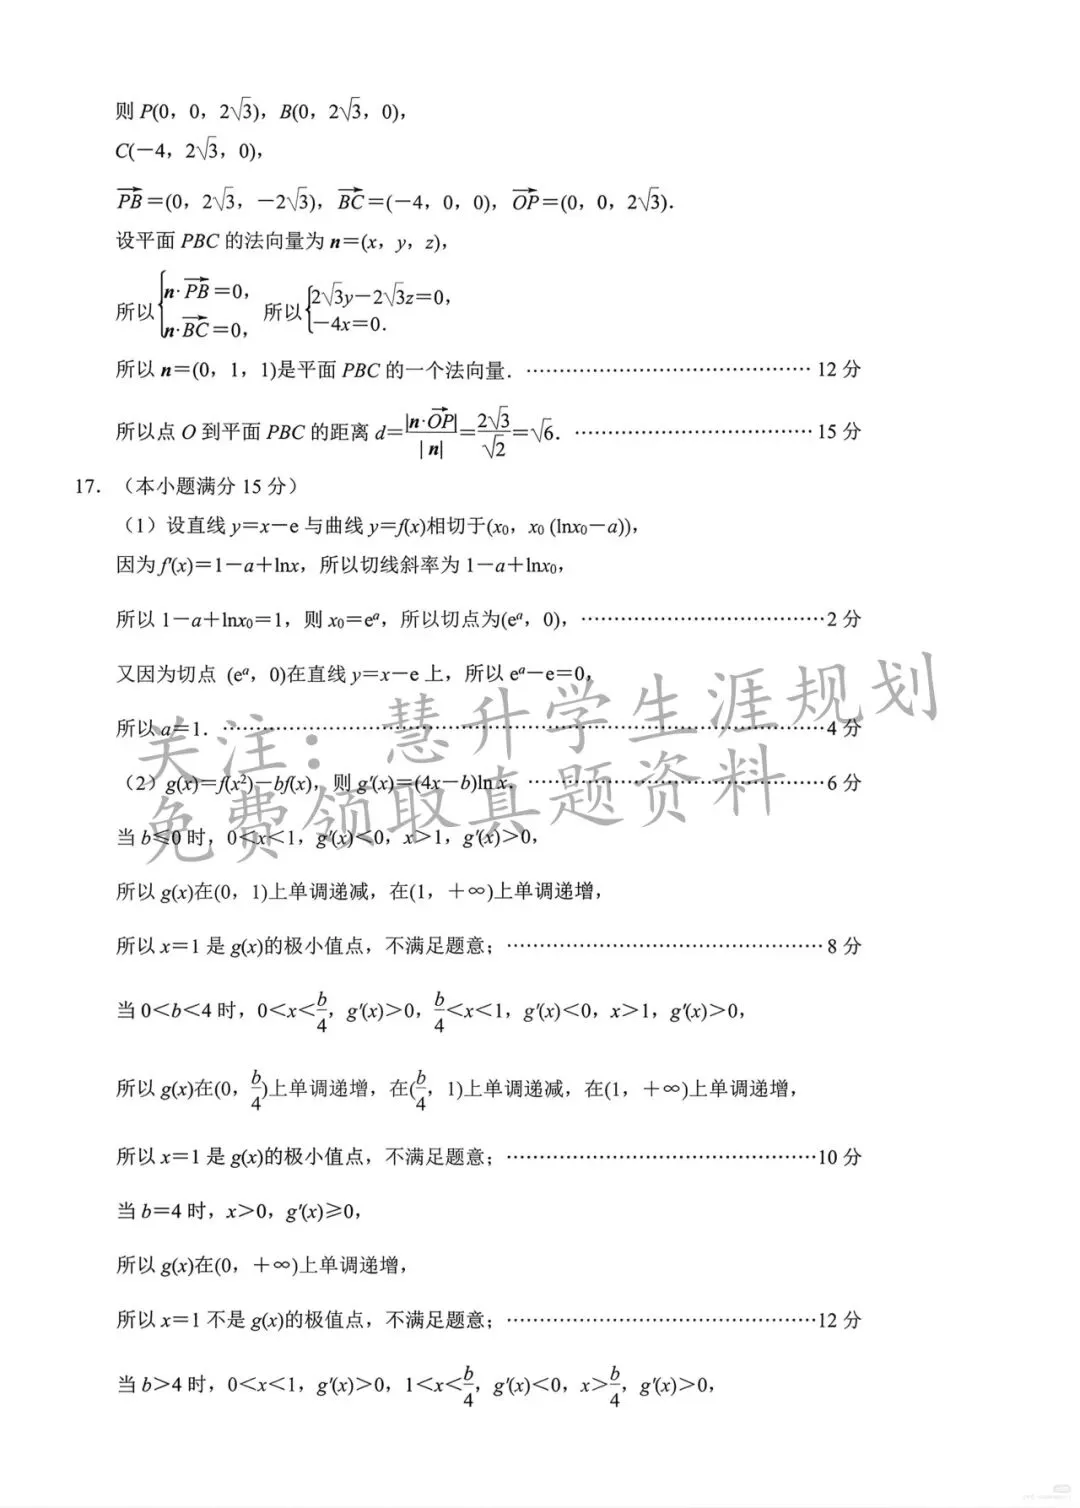 则 P(0，0，2√3)，B(0，2√3，0)，
C(－4，2√3，0)，
PB→＝(0，2√3，－2√3)，BC→＝(－4，0，0)，OP→＝(0，0，2√3)．
设平面 PBC 的法向量为 n＝(x，y，z)，
所以{n·PB→＝0，n·BC→＝0，所以{2√3y－2√3z＝0，－4x＝0．
所以 n＝(0，1，1)是平面 PBC 的一个法向量．……………………………………12 分
所以点 O 到平面 PBC 的距离 d＝|n·OP→|/|n|＝2√3/√2＝√6．………………………………15 分
17．（本小题满分 15 分）
（1）设直线 y＝x－e 与曲线 y＝f(x)相切于(x₀，x₀ (lnx₀－a))，
因为 f′(x)＝1－a＋lnx，所以切线斜率为 1－a＋lnx₀，
所以 1－a＋lnx₀＝1，则 x₀＝eᵃ，所以切点为(eᵃ，0)，………………………………2 分
又因为切点 (eᵃ，0)在直线 y＝x－e 上，所以 eᵃ－e＝0，
所以 a＝1．………………………………………………………………………………4 分
（2）g(x)＝f(x²)－bf(x)，则 g′(x)＝(4x－b)ln x．……………………………………6 分
关注：慧升学生涯规划
免费领取真题资料
当 b≤0 时，0＜x＜1，g′(x)＜0，x＞1，g′(x)＞0，
所以 g(x)在(0，1)上单调递减，在(1，＋∞)上单调递增，
所以 x＝1 是 g(x)的极小值点，不满足题意；…………………………………………8 分
当 0＜b＜4 时，0＜x＜b/4，g′(x)＞0，b/4＜x＜1，g′(x)＜0，x＞1，g′(x)＞0，
所以 g(x)在(0，b/4)上单调递增，在(b/4，1)上单调递减，在(1，＋∞)上单调递增，
所以 x＝1 是 g(x)的极小值点，不满足题意；…………………………………………10 分
当 b＝4 时，x＞0，g′(x)≥0，
所以 g(x)在(0，＋∞)上单调递增，
所以 x＝1 不是 g(x)的极值点，不满足题意；…………………………………………12 分
当 b＞4 时，0＜x＜1，g′(x)＞0，1＜x＜b/4，g′(x)＜0，x＞b/4，g′(x)＞0，